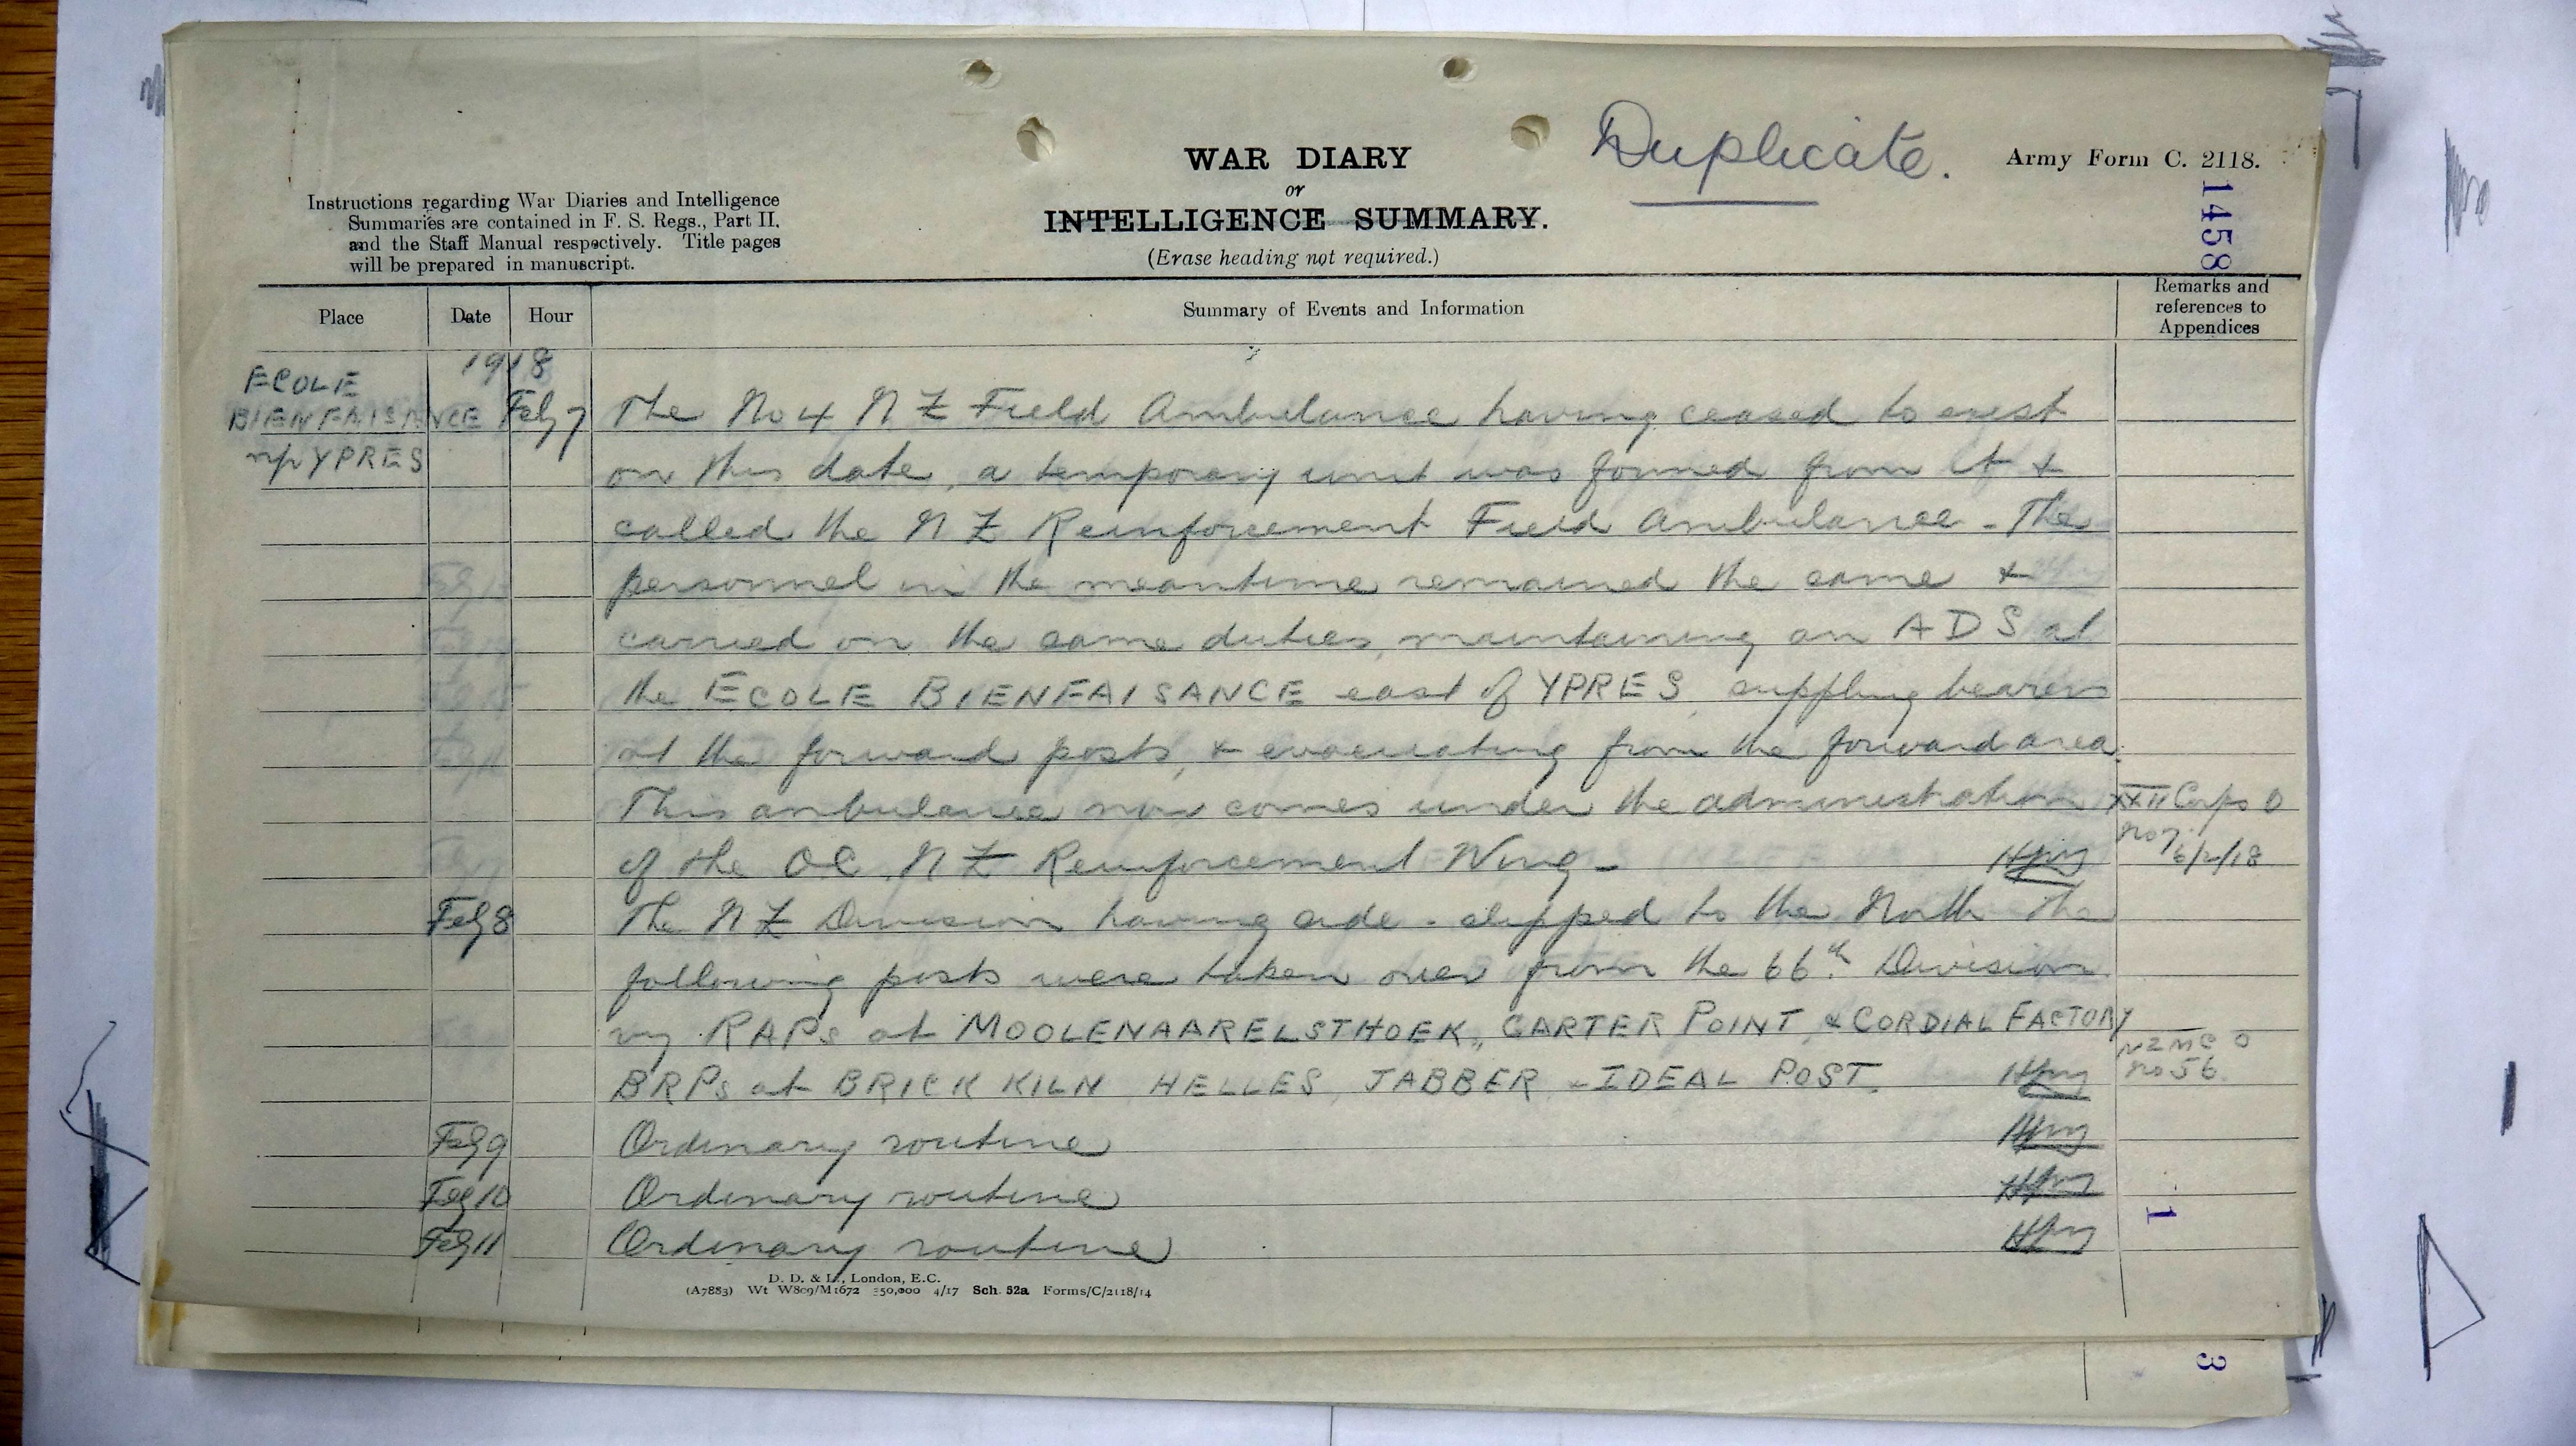 Duplicate.
Army Form C. 2118.
1458
WAR DIARY
or
INTELLIGENCE SUMMARY.
(Erase heading not required.)
Instructions regarding War Diaries and Intelligence
Summaries are contained in F. S. Regs., Part II.
and the Staff Manual respectively. Title pages
will be prepared in manuscript.
Place Date Hour Summary of Events and Information Remarks and references to Appendices
1918
ECOLE
BIENFAISANCE Feb 7 The No 4 N Z Field Ambulance having ceased to exist
nr YPRES on this date, a temporary unit was formed from it &
called the N Z Reinforcement Field Ambulance - The
personnel in the meantime remained the same &
carried on the same duties, maintaining an ADS at
the ECOLE BIENFAISANCE east of YPRES suppling bearers
at the forward posts, & evacuating from the forward area.
This ambulance now comes under the administration XXII Corps O
of the OC. N Z Reinforcement Wing - No 7 6/2/18
Feb 8 The N Z Division having side-slipped to the North the
following posts were taken over from the 66th Division
viz RAPs at MOOLENAARELSTHOEK, CARTER POINT, & CORDIAL FACTORY
BRPs at BRICK KILN HELLES, JABBER - IDEAL POST. NZMC O No 56
Feb 9 Ordinary routine
Feb 10 Ordinary routine
Feb 11 Ordinary routine
1
D. D. & L., London, E.C.
(A7883) Wt W809/M1672 350,000 4/17 Sch. 52a Forms/C/2118/14
3